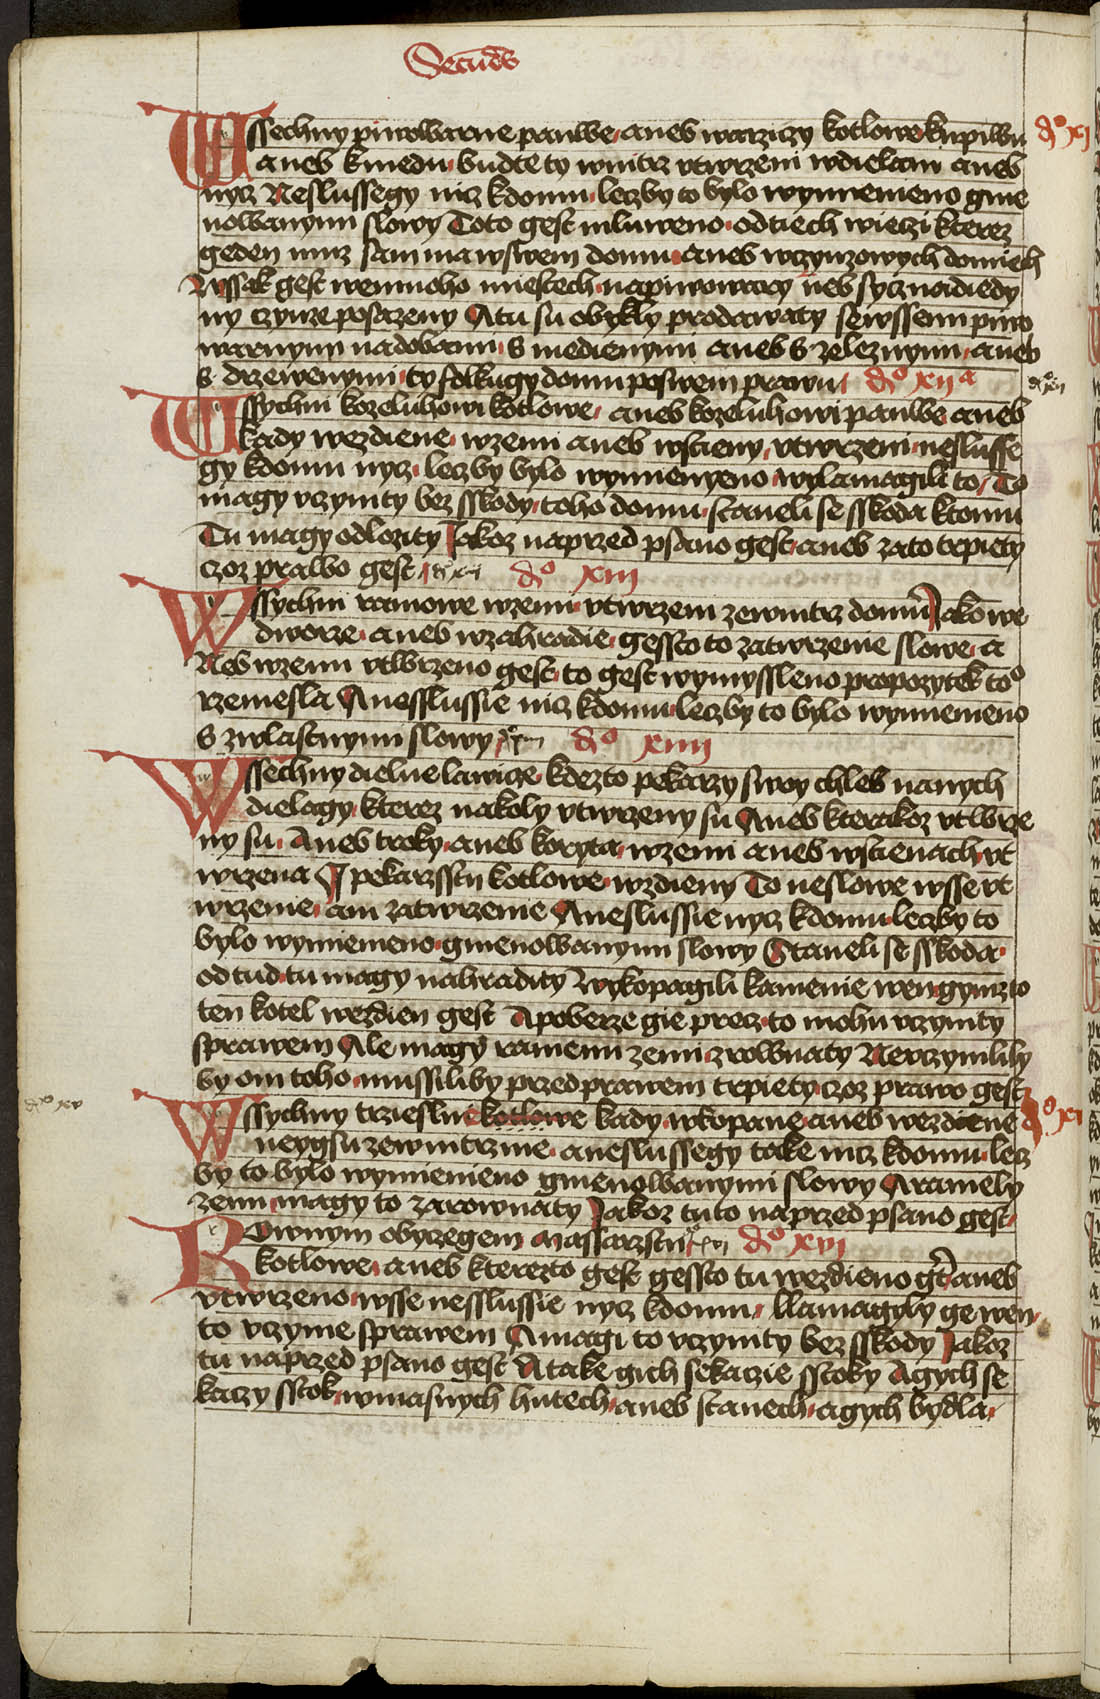 Secūds
Wssechny piwowarne panwe aneb warziczy kotlowe kupiwu dͦ xi
aneb kmedu budte ty wnitrz vtwrzeni wdielani aneb
nycz Neslussegy nicz kdomu leczby to bylo wymieneno gme
nowanymi slowy Toto gest mluweno od tiech wieczi kterez
geden muz sam ma wswem domu aneb wczynzowych domiech
Wssak gest wemnoho miestech napiwowary neb sycz nadiedy
ny czynze posazeny A tu su obykly prodawaty sewssemi piwo
warnymi nadobami s medienymi aneb s zeleznymi aneb
s drzewenymi ty sslussugy domu poswem prawu dͦ xii a dͦ xii
Wssychni kozeluhowi kotlowe aneb kozeluhowi panwe aneb
kady wezdiene wzemi aneb wstieny vtwrzeni neslusse
gy kdomu nycz leczby bylo wymienyeno wylamagili to To
magy vczynity bez sskody toho domu staneli se sskoda ktomu
Tu magy odlozity Jakoz naprzed psano gest aneb zato trpiety
czoz prawo gest dͦ xiii
Wssychni ramowe wzemi vtwrzeni zewnitrz domu Jako we
dworze aneb wzahradie gessto to zatwrzenie slowe a
Neb wzemi vtwrzeno gest to gest wymyssleno propozytek toͦ
rzemesla A nesslussie nicz kdomu leczby to bylo wymieneno
s zwlastnymi slowy dͦ xiiii
Wssechny dielne lawicze kdezto pekarzy swoy chleb nanych
dielagy kterez nakoly vtwrzeny su Aneb kterakoz vtwrze
ny su Aneb troky aneb koryta wzemi aneb wstienach vt
wrzena J pekarssczi kotlowe wzdieny To neslowe wsse vt
wrzenie ani zatwrzenie A neslussie nycz kdomu leczby to
bylo wymieneno gmenowanymi slowy Staneli se sskoda
odtud tu magy nahradity Wykopagili kamenie wen gymzto
ten kotel wezdien gest A poberze gie precz to mohu vczynity
sprawem Ale magy ramenn zemi zrownaty Nevczynilily
by oni toho mussiliby przed prawem trpiety czoz prawo gest
Wssychny trzieslne kotlowe kady wkopane aneb wezdiene dͦ xv
neygsu zewnitrznie aneslussegy take nicz kdomu lecz
by to bylo wymienieno gmenowanymi slowy A ramely
zemi magy to zarownaty Jakoz tuto naprzed psano gest
Rownym obyczegem massarzsczi dͦ xvi
kotlowe aneb kterezto gest gessto tu wezdieno gt aneb
vtwrzeno wsse nesslussie nycz kdomu llamagyly ge wen
to vczynie sprawem A magi to vczynity bez sskody Jakoz
tu naprzed psano gest A take gich sekaczie sstoky A gych se
kaczy sstok wmasnych hutech aneb stanech agych bydla